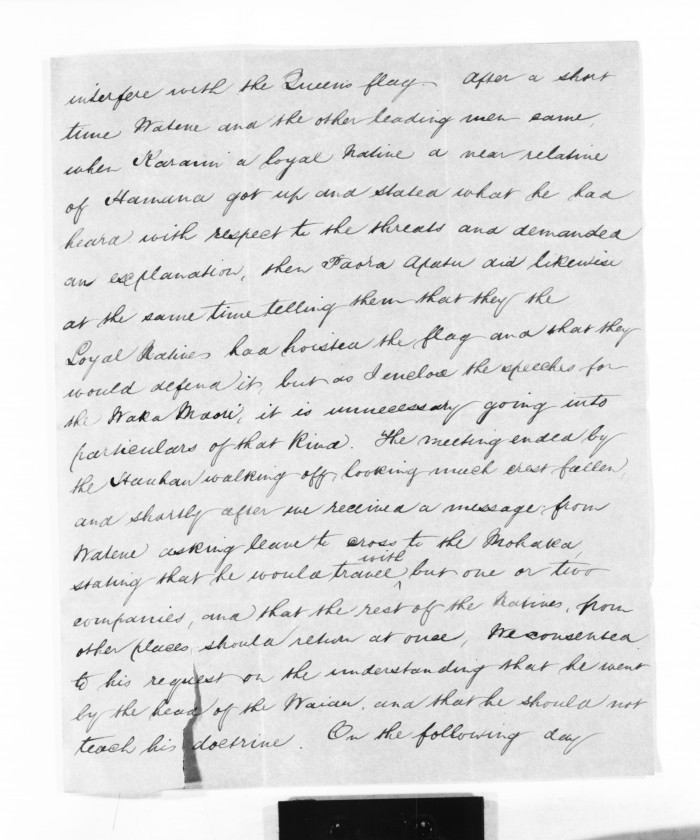 interfere with the Queens flag. After a short
time Watene and the other leading men came,
when Karauri a loyal Native a near relative
of Hamana got up and stated what he had
heard with respect to the threats and demanded
an explanation, then Paora Apatu did likewise
at the same time telling them that they the
Loyal Natives had hoisted the flag and that they
would defend it, but as I enclose the speeches for
the Waka Maori, it is unnecessary going into
particulars of that kind. The meeting ended by
the Hauhau walking off, looking much crest fallen,
and shortly after we received a message from
Watene asking leave to cross to the Mohaka,
stating that he would travel with but one or two
companies, and that the rest of the Natives, from
other places should return at once, We consented
to his request on the understanding that he went
by the head of the Waiau, and that he should not
teach his doctrine. On the following day